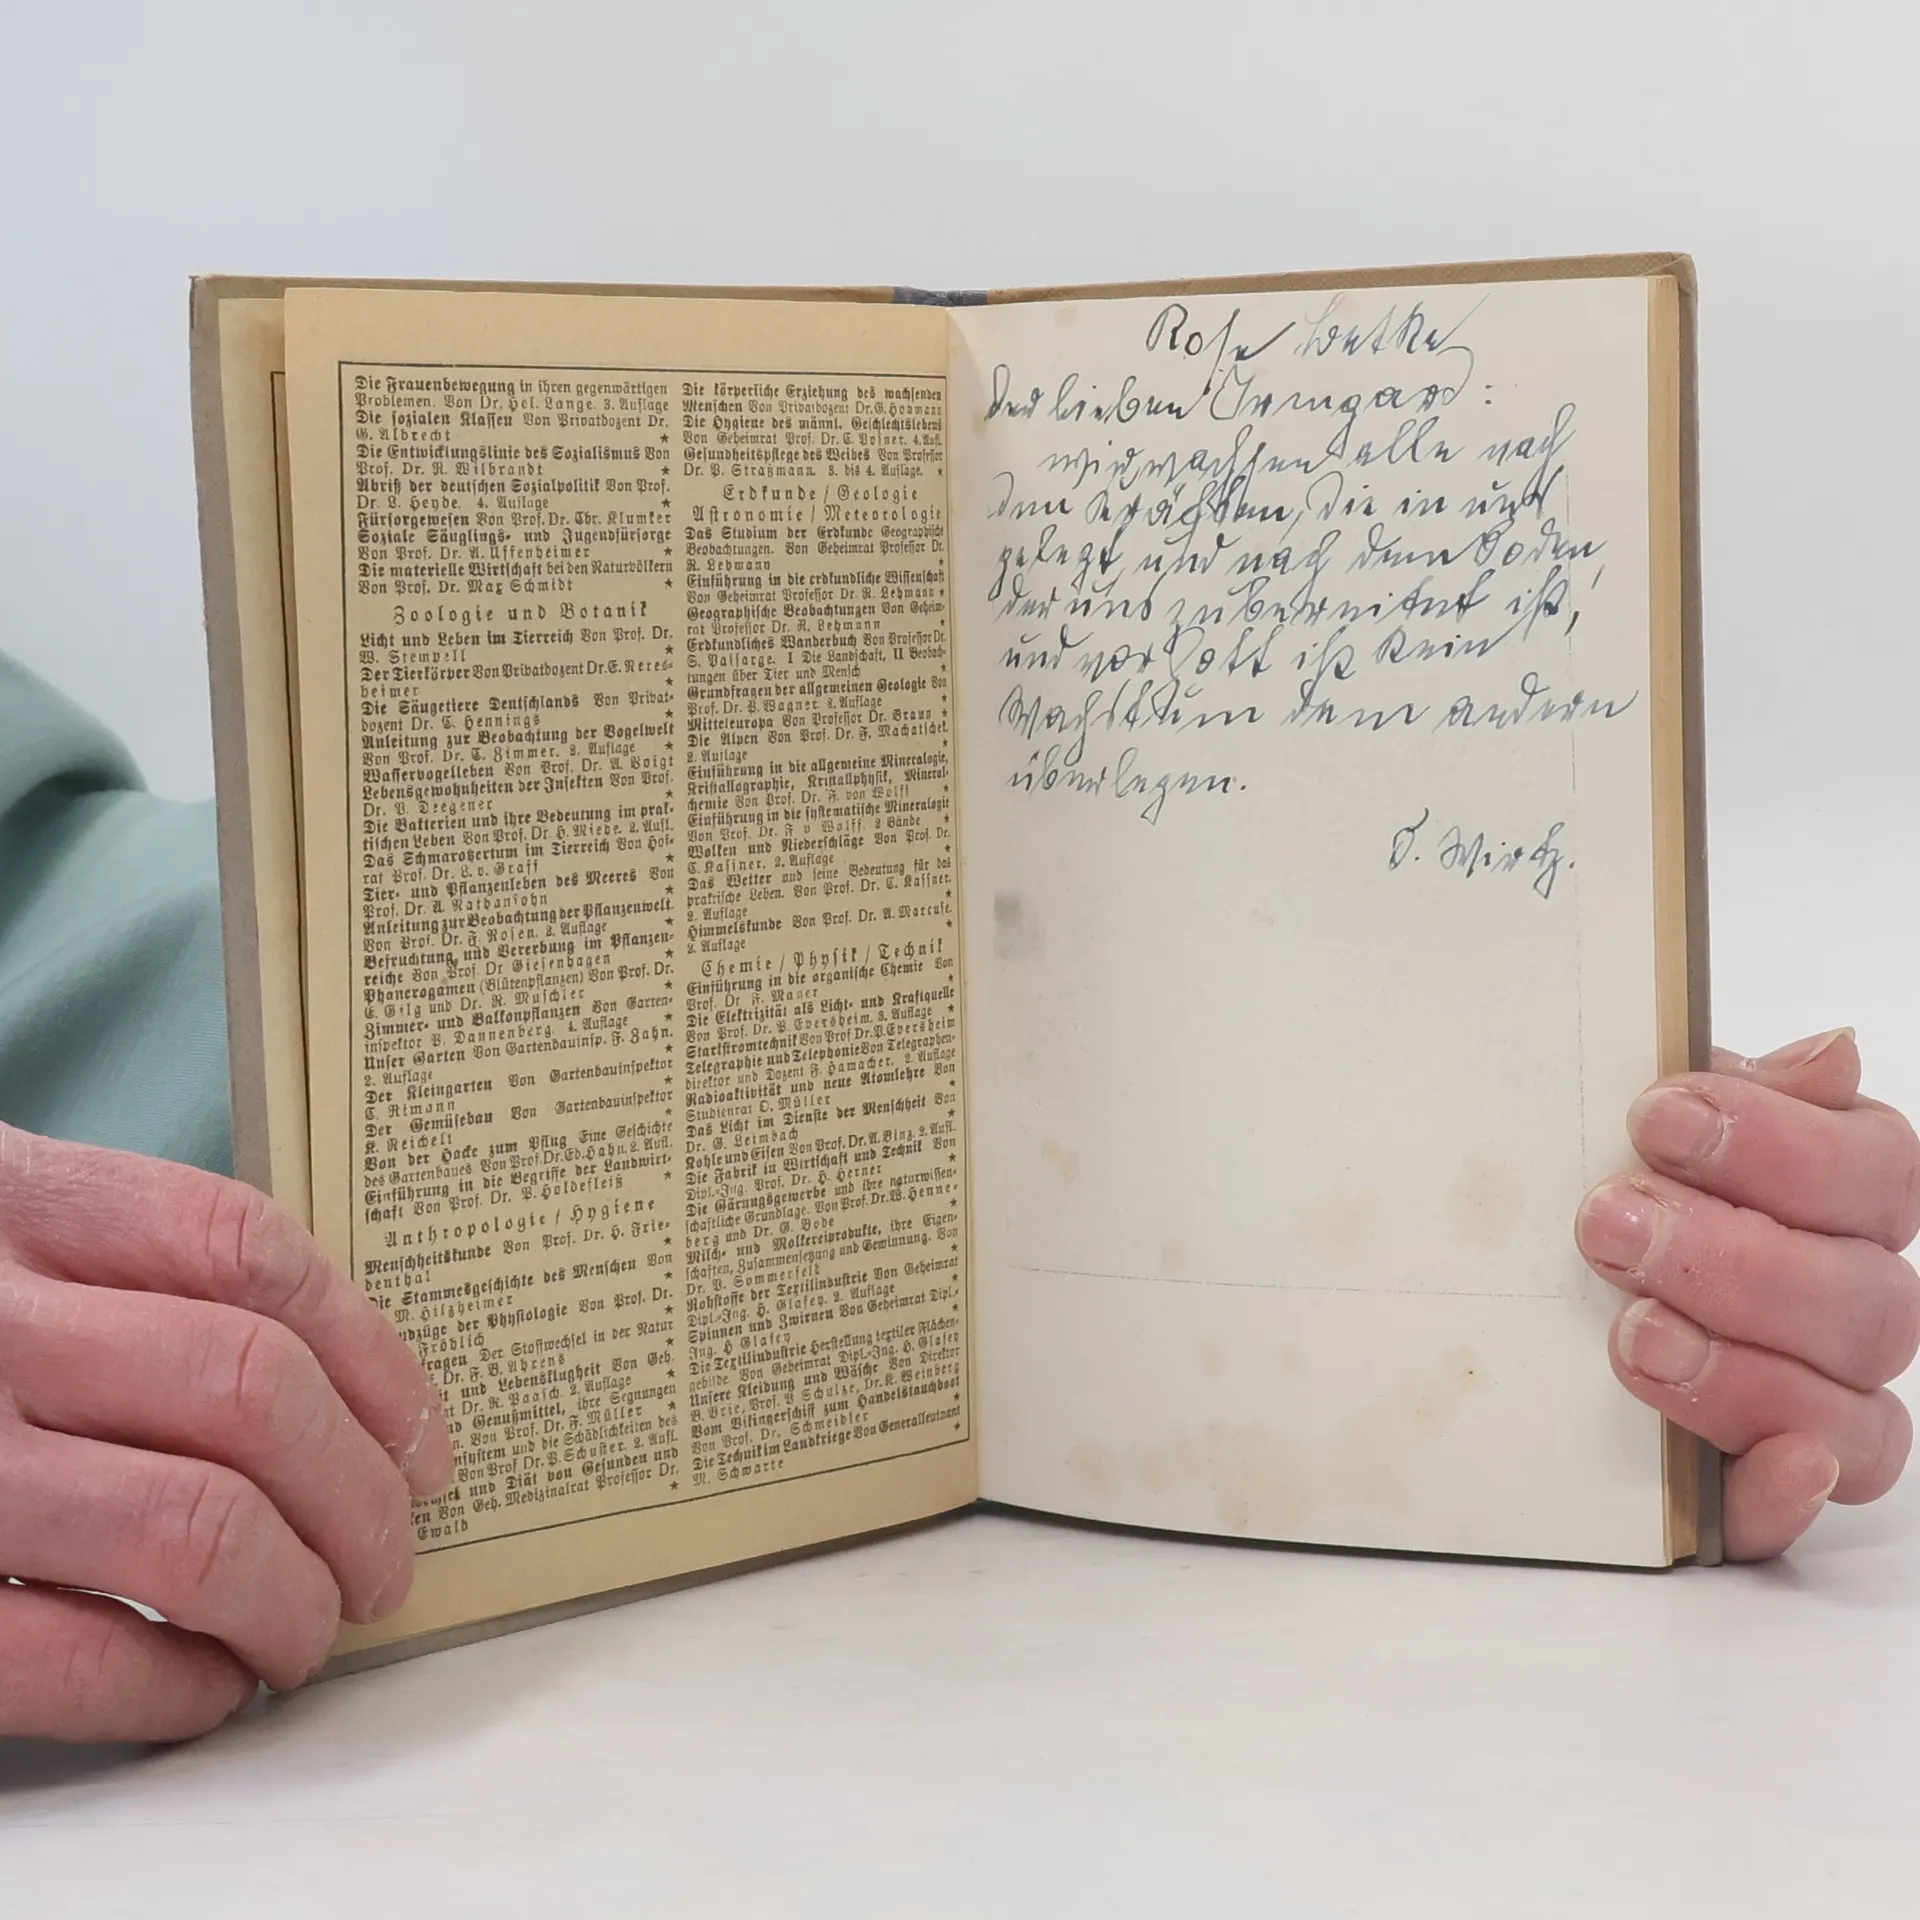 Die Frauenbewegung in ihren gegenwärtigen
Problemen. Von Dr. Hel. Lange. 3. Auflage
Die sozialen Klassen Von Privatdozent Dr.
G. Albrecht ★
Die Entwicklungslinie des Sozialismus Von
Prof. Dr. R. Wilbrandt ★
Abriß der deutschen Sozialpolitik Von Prof.
Dr. L. Heyde. 4. Auflage ★
Fürsorgewesen Von Prof. Dr. Chr. Klumker
Soziale Säuglings- und Jugendfürsorge
Von Prof. Dr. A. Uffenheimer ★
Die materielle Wirtschaft bei den Naturvölkern
Von Prof. Dr. Max Schmidt ★
Zoologie und Botanik
Licht und Leben im Tierreich Von Prof. Dr.
W. Stempell ★
Der Tierkörper Von Privatdozent Dr. E. Neres-
heimer ★
Die Säugetiere Deutschlands Von Privat-
dozent Dr. C. Hennings ★
Anleitung zur Beobachtung der Vogelwelt
Von Prof. Dr. C. Zimmer. 2. Auflage ★
Wasservogelleben Von Prof. Dr. A. Voigt
Lebensgewohnheiten der Insekten Von Prof.
Dr. P. Deegener ★
Die Bakterien und ihre Bedeutung im prak-
tischen Leben Von Prof. Dr. H. Miehe. 2. Aufl.
Das Schmarotzertum im Tierreich Von Hof-
rat Prof. Dr. L. v. Graff ★
Tier- und Pflanzenleben des Meeres Von
Prof. Dr. A. Nathansohn ★
Anleitung zur Beobachtung der Pflanzenwelt
Von Prof. Dr. F. Rosen. 2. Auflage ★
Befruchtung und Vererbung im Pflanzen-
reiche Von Prof. Dr Giesenhagen ★
Phanerogamen (Blütenpflanzen) Von Prof. Dr.
E. Gilg und Dr. R. Muschler ★
Zimmer- und Balkonpflanzen Von Garten-
inspektor P. Dannenberg. 4. Auflage ★
Unser Garten Von Gartenbauinsp. F. Zahn.
2. Auflage ★
Der Kleingarten Von Gartenbauinspektor
C. Rimann ★
Der Gemüsebau Von Gartenbauinspektor
K. Reichelt ★
Von der Hacke zum Pflug Eine Geschichte
des Gartenbaues Von Prof. Dr. Ed. Hahn. 2. Aufl.
Einführung in die Begriffe der Landwirt-
schaft Von Prof. Dr. P. Holdefleiß ★
Anthropologie / Hygiene
Menschheitskunde Von Prof. Dr. H. Frie-
denthal ★
Die Stammesgeschichte des Menschen Von
M. Hilzheimer ★
ndzüge der Physiologie Von Prof. Dr.
Fröhlich ★
ragen Der Stoffwechsel in der Natur
Dr. F. B. Ahrens ★
it und Lebensklugheit Von Geh.
Dr. R. Paasch. 2. Auflage ★
nd Genußmittel, ihre Segnungen
Von Prof. Dr. F. Müller ★
nsystem und die Schädlichkeiten des
Von Prof Dr. P. Schuster. 2. Aufl.
und Diät von Gesunden und
ken Von Geh. Medizinalrat Professor Dr.
Ewald ★
Die körperliche Erziehung des wachsenden
Menschen Von Privatdozent Dr. G. Hohmann
Die Hygiene des männl. Geschlechtslebens
Von Geheimrat Prof. Dr. C. Posner. 4. Aufl.
Gesundheitspflege des Weibes Von Professor
Dr. P. Straßmann. 3. bis 4. Auflage. ★
Erdkunde / Geologie
Astronomie / Meteorologie
Das Studium der Erdkunde Geographische
Beobachtungen. Von Geheimrat Professor Dr.
R. Lehmann ★
Einführung in die erdkundliche Wissenschaft
Von Geheimrat Professor Dr. R. Lehmann ★
Geographische Beobachtungen Von Geheim-
rat Professor Dr. R. Lehmann ★
Erdkundliches Wanderbuch Von Professor Dr.
S. Passarge. I Die Landschaft, II Beobach-
tungen über Tier und Mensch ★
Grundfragen der allgemeinen Geologie Von
Prof. Dr. P. Wagner. 2. Auflage ★
Mitteleuropa Von Professor Dr. Braun ★
Die Alpen Von Prof. Dr. F. Machatschek.
2. Auflage ★
Einführung in die allgemeine Mineralogie,
Kristallographie, Kristallphysik, Mineral-
chemie Von Prof. Dr. F. von Wolff ★
Einführung in die systematische Mineralogie
Von Prof. Dr. F v Wolff. 2 Bände ★
Wolken und Niederschläge Von Prof. Dr.
C. Kassner. 2. Auflage ★
Das Wetter und seine Bedeutung für das
praktische Leben. Von Prof. Dr. C. Kassner.
2. Auflage ★
Himmelskunde Von Prof. Dr. A. Marcuse.
2. Auflage ★
Chemie / Physik / Technik
Einführung in die organische Chemie Von
Prof. Dr F. Mayer ★
Die Elektrizität als Licht- und Kraftquelle
Von Prof. Dr. P. Eversheim. 3. Auflage ★
Starkstromtechnik Von Prof Dr. P. Eversheim
Telegraphie und Telephonie Von Telegraphen-
direktor und Dozent F. Hamacher. 2. Auflage
Radioaktivität und neue Atomlehre Von
Studienrat O. Müller ★
Das Licht im Dienste der Menschheit Von
Dr. G. Leimbach ★
Kohle und Eisen Von Prof. Dr. A. Binz. 2. Aufl.
Die Fabrik in Wirtschaft und Technik Von
Dipl.-Ing. Prof. Dr. H. Herner ★
Die Gärungsgewerbe und ihre naturwissen-
schaftliche Grundlage. Von Prof. Dr. W. Henne-
berg und Dr. G. Bode ★
Milch- und Molkereiprodukte, ihre Eigen-
schaften, Zusammensetzung und Gewinnung. Von
Dr. P. Sommerfeld ★
Rohstoffe der Textilindustrie Von Geheimrat
Dipl.-Ing. H. Glafey. 2. Auflage ★
Spinnen und Zwirnen Von Geheimrat Dipl.-
Ing. H Glafey ★
Die Textilindustrie Herstellung textiler Flächen-
gebilde. Von Geheimrat Dipl.-Ing. H. Glafey
Unsere Kleidung und Wäsche Von Direktor
B. Brie, Prof. P Schulze, Dr. K. Weinberg
Vom Wikingerschiff zum Handelstauchboot
Von Prof. Dr. Schmeidler ★
Die Technik im Landkriege Von Generalleutnant
M. Schwarte ★
Rose
Der lieben Irmgard:
wir wachsen alle nach
den Kräften, die in uns
gelegt, und nach dem Boden,
der uns zubereitet ist,
und vor Gott ist kein
Wachstum dem andern
überlegen.
T. Wirtz.